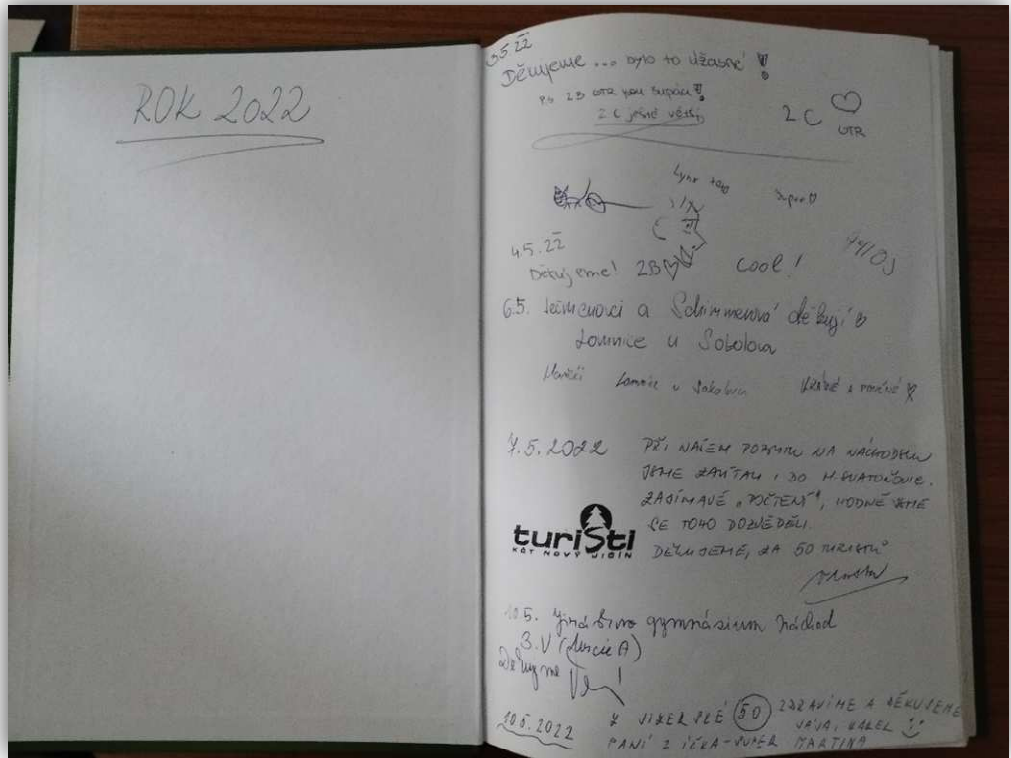 ROK 2022
3.5.22
Děkujeme ... bylo to úžasné !
P.S. 2B UTR jsou supáci !
2 C ještě větší
2 C ♡
UTR
4.5.22
Děkujeme! 2B ♡
cool!
6.5. a Schimmerová děkují
Lomnice u Sokolova
Lomnice u Sokolova
7.5.2022
PŘI NAŠEM POBYTU NA NÁCHODSKU
JSME ZAVÍTALI I DO M. SVATOŇOVIC.
ZAJÍMAVÉ „POČTENÍ“, HODNĚ JSME
SE TOHO DOZVĚDĚLI.
DĚKUJEME, ZA 50 TURISTŮ
turiSti
KČT NOVÝ JIČÍN
10.5. Jiráskovo gymnázium Náchod
3.V (A)
Děkujeme
10.5.2022
Z JIZERSKÉ 50 ZDRAVÍME A DĚKUJEME
JÁJA, KAREL
PANÍ Z IČKA - SUPER MARTINA